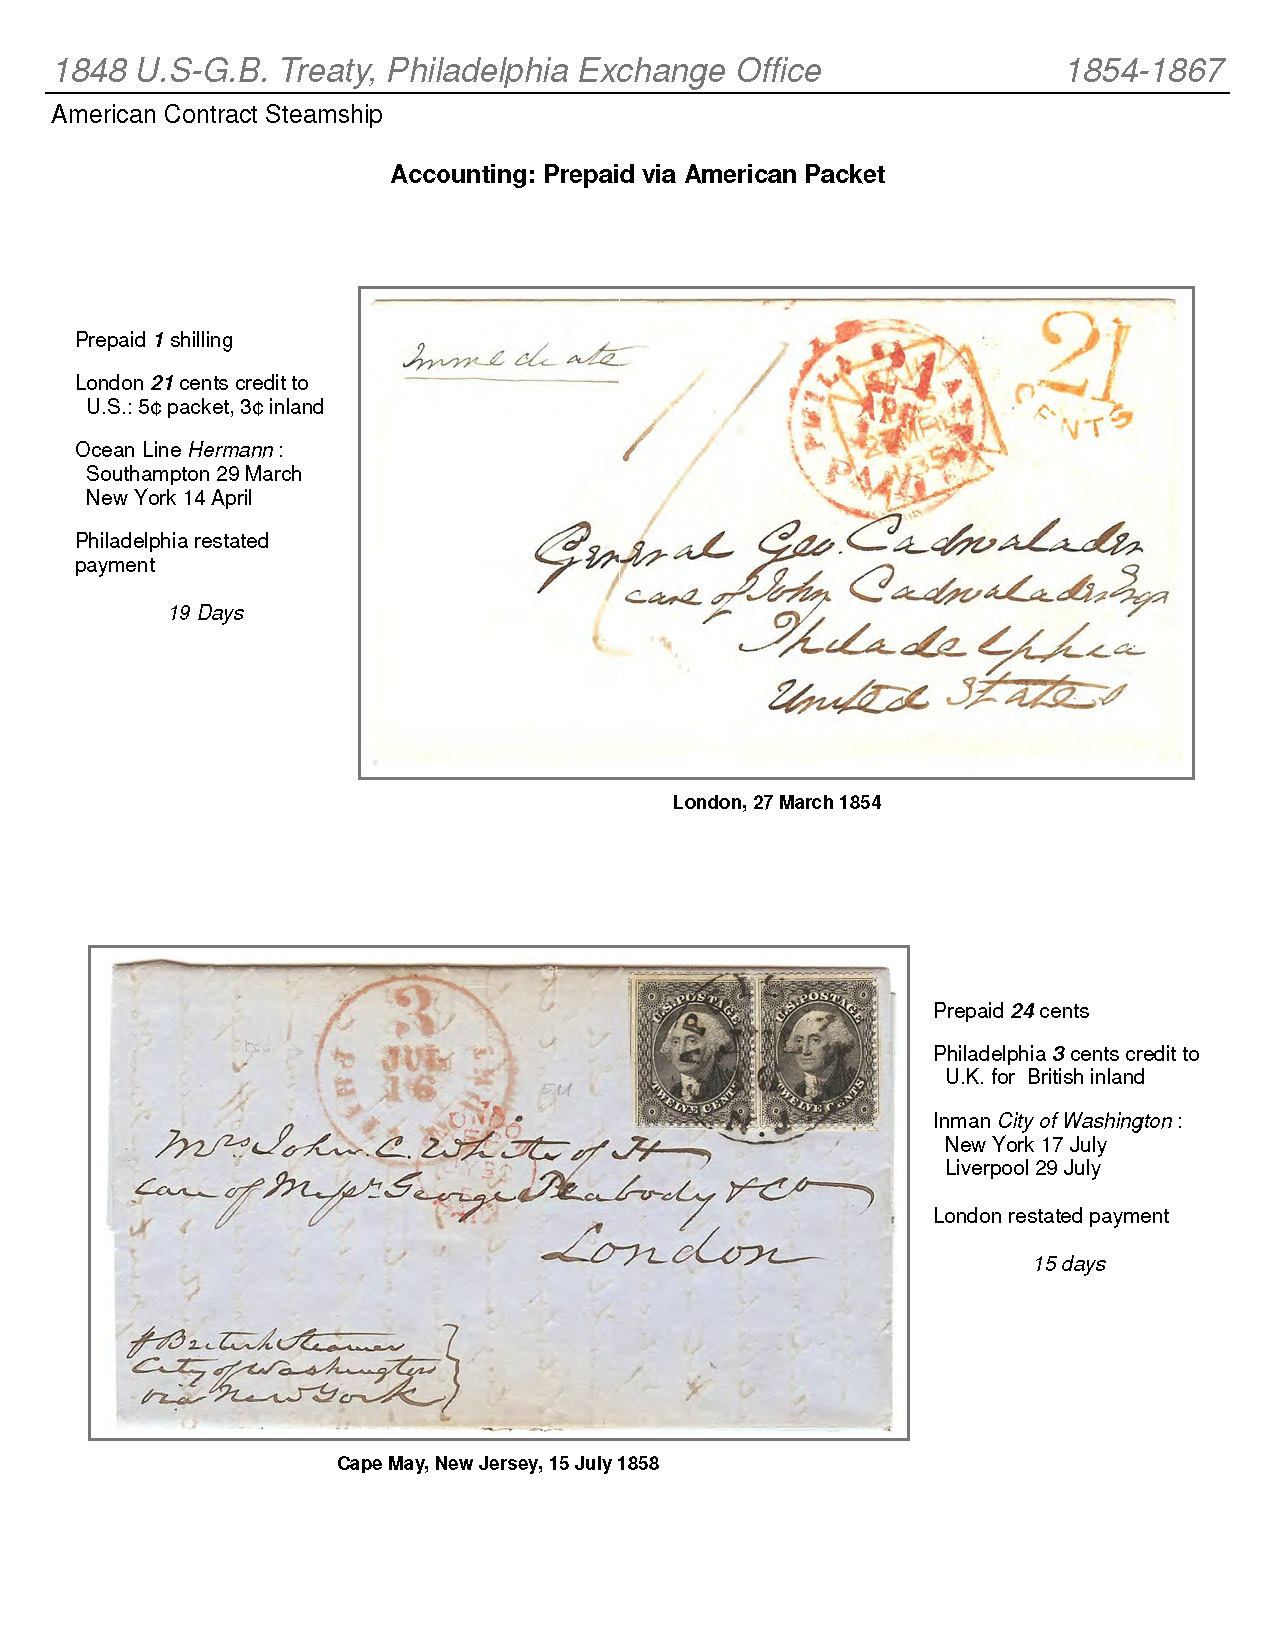 1848 U.S-G.B. Treaty, Philadelphia Exchange Office 1854-1867
American Contract Steamship
Accounting: Prepaid via American Packet
Prepaid 1 shilling
London 21 cents credit to
U.S.: 5¢ packet, 3¢ inland
Ocean Line Hermann :
Southampton 29 March
New York 14 April
Philadelphia restated
payment
19 Days
Immediate
21
CENTS
General Geo. Cadwalader
care of John Cadwalader Esqr
Philadelphia
United States
London, 27 March 1854
3
JUL
16
U.S. POSTAGE
TWELVE CENTS
U.S. POSTAGE
TWELVE CENTS
N.J
Mrs. John. C. White of H
care of Messrs. George Peabody & Co
London
British Steamer
City of Washington
via New York
Prepaid 24 cents
Philadelphia 3 cents credit to
U.K. for British inland
Inman City of Washington :
New York 17 July
Liverpool 29 July
London restated payment
15 days
Cape May, New Jersey, 15 July 1858